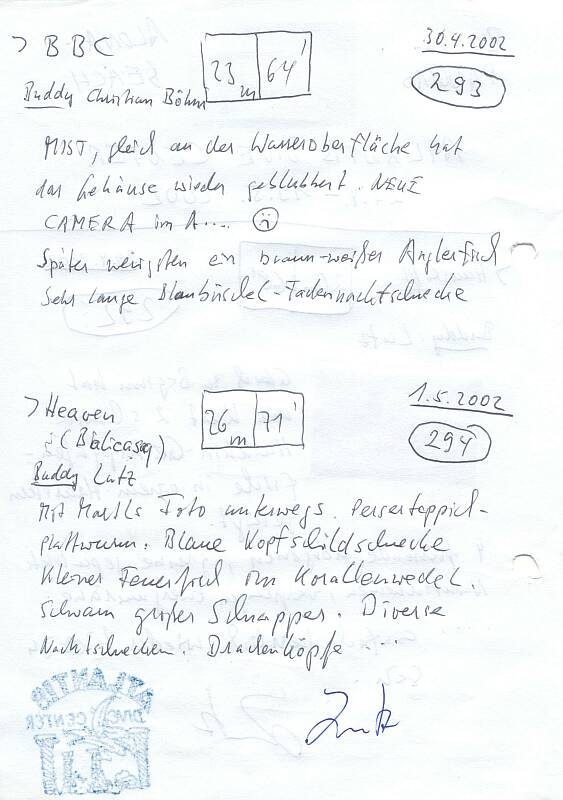 > BBC 23m 64' 30.4.2002
Buddy Christian Böhm 293
MIST, gleich an der Wasseroberfläche hat
das Gehäuse wieder geblubbert. NEUE
CAMERA im A.... ☹
Später wenigsten ein braun-weißer Anglerfisch
Sehr lange Blaubüschel-Fadennachtschnecke
> Heaven 26m 71' 1.5.2002
(Balicasag) 294
Buddy Lutz
Mit Foto unterwegs. Perserteppich-
plattwurm. Blaue Kopfschildschnecke
kleiner Feuerfisch im Korallenwedel.
Schwarm großer Schnapper. Diverse
Nachtschnecken. Drachenköpfe ....
Lutz
ATLANTIS
DIVE CENTER